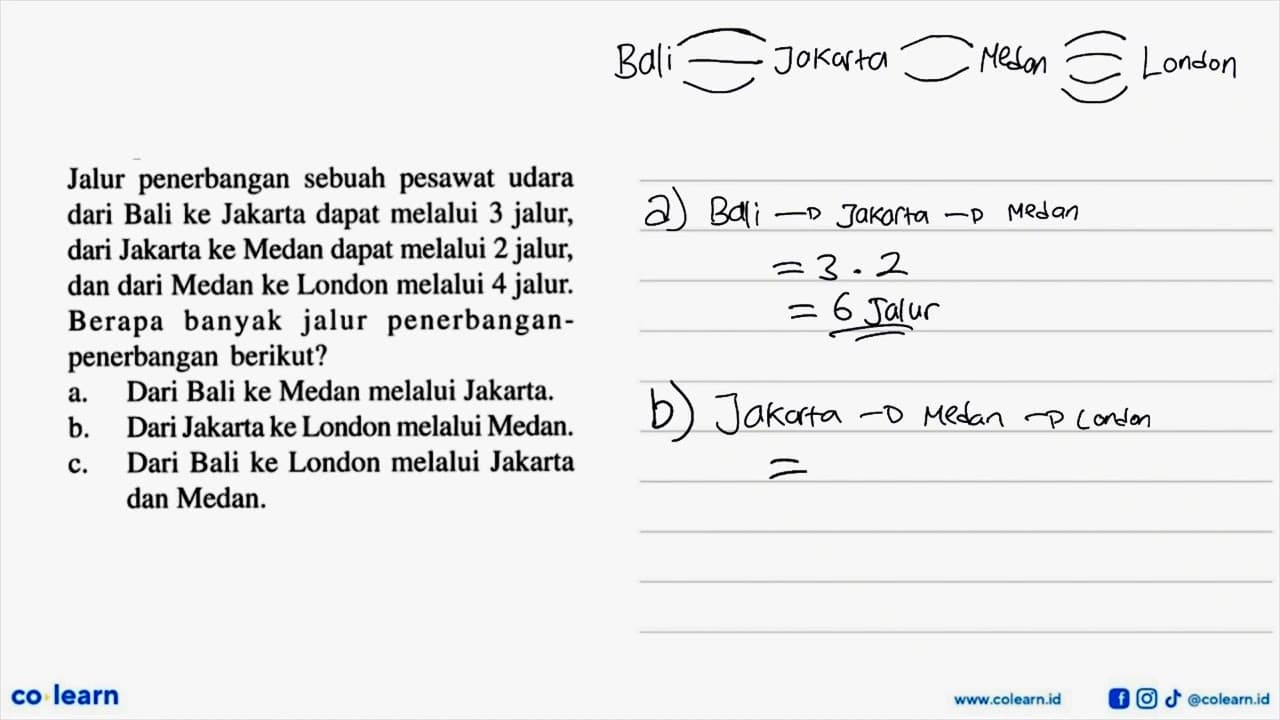 Bali Jakarta Medan London
Jalur penerbangan sebuah pesawat udara
dari Bali ke Jakarta dapat melalui 3 jalur,
dari Jakarta ke Medan dapat melalui 2 jalur,
dan dari Medan ke London melalui 4 jalur.
Berapa banyak jalur penerbangan-
penerbangan berikut?
a. Dari Bali ke Medan melalui Jakarta.
b. Dari Jakarta ke London melalui Medan.
c. Dari Bali ke London melalui Jakarta
dan Medan.
a) Bali → Jakarta → Medan
= 3 . 2
= 6 Jalur
b) Jakarta → Medan → London
=
co learn
www.colearn.id @colearn.id